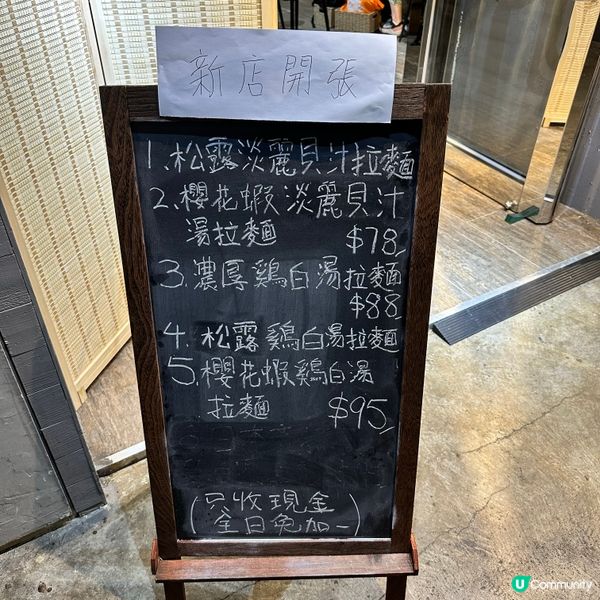 新店開張
1.松露淡麗貝汁拉麵
2.櫻花蝦淡麗貝汁
湯拉麵 $78
3.濃厚鷄白湯拉麵
$88
4.松露鷄白湯拉麵
5.櫻花蝦鷄白湯
拉麵 $95
(只收現金
全日免加一)
U Community